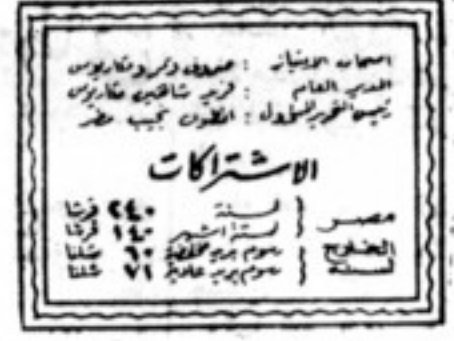 اصحاب الامتياز : صروف ونمر ومكاريوس
المدير العام : فريد شاهين مكاريوس
رئيس التحرير المسؤول : انطون نجيب مطر
الاشتراكات
مصر { لسنة ٢٤٠ قرشا
لستة اشهر ١٤٠ قرشا
الخارج لسنه { رسوم بريد مخفضة ٦٠ شلنا
رسوم بريد عادية ٧١ شلنا